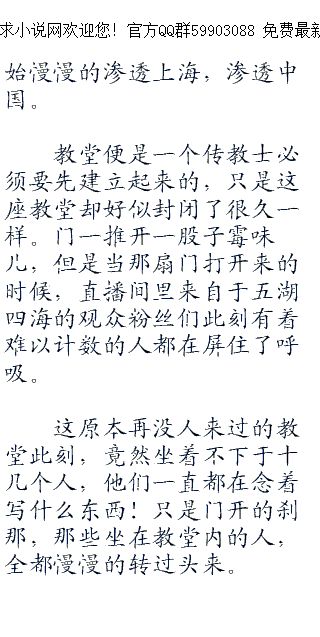 求小说网欢迎您！官方QQ群59903088 免费最新
始慢慢的渗透上海，渗透中
国。
教堂便是一个传教士必
须要先建立起来的，只是这
座教堂却好似封闭了很久一
样。门一推开一股子霉味
儿，但是当那扇门打开来的
时候，直播间里来自于五湖
四海的观众粉丝们此刻有着
难以计数的人都在屏住了呼
吸。
这原本再没人来过的教
堂此刻，竟然坐着不下于十
几个人，他们一直都在念着
写什么东西！只是门开的刹
那，那些坐在教堂内的人，
全都慢慢的转过头来。